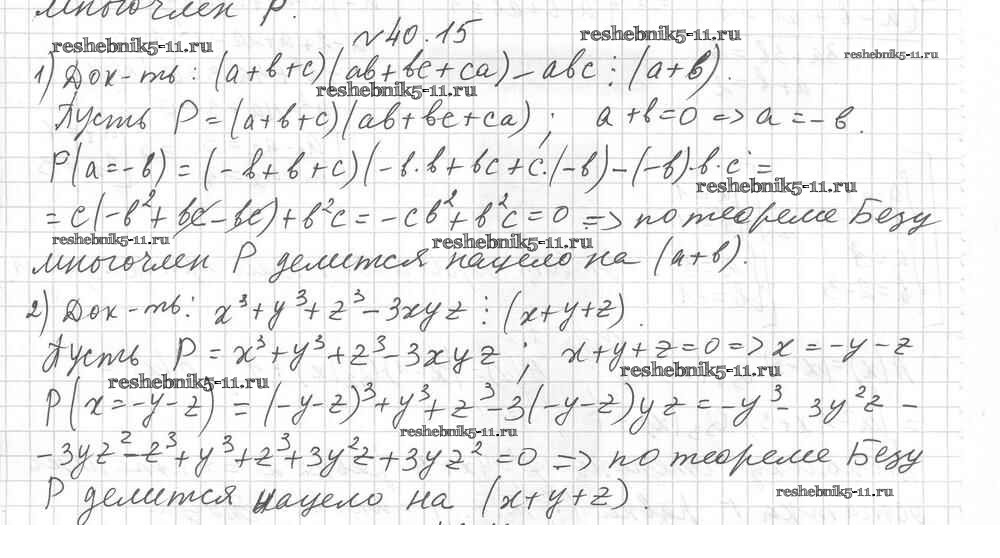 многочлен P.
№40.15
reshebnik5-11.ru reshebnik5-11.ru reshebnik5-11.ru
1) Док-ть: (a+b+c)(ab+bc+ca)-abc ⋮ (a+b).
reshebnik5-11.ru
Пусть P=(a+b+c)(ab+bc+ca); a+b=0 => a=-b.
P(a=-b) = (-b+b+c)(-b·b+bc+c·(-b)-(-b)·b·c =
reshebnik5-11.ru
= c(-b²+bc-bc)+b²c = -cb²+b²c=0 => по теореме Безу
reshebnik5-11.ru reshebnik5-11.ru
многочлен P делится нацело на (a+b).
2) Док-ть: x³+y³+z³-3xyz ⋮ (x+y+z).
Пусть P=x³+y³+z³-3xyz; x+y+z=0 => x=-y-z
reshebnik5-11.ru reshebnik5-11.ru
P(x=-y-z) = (-y-z)³+y³+z³-3(-y-z)yz = -y³-3y²z-
reshebnik5-11.ru
-3yz²-z³+y³+z³+3y²z+3yz²=0 => по теореме Безу
P делится нацело на (x+y+z).
reshebnik5-11.ru